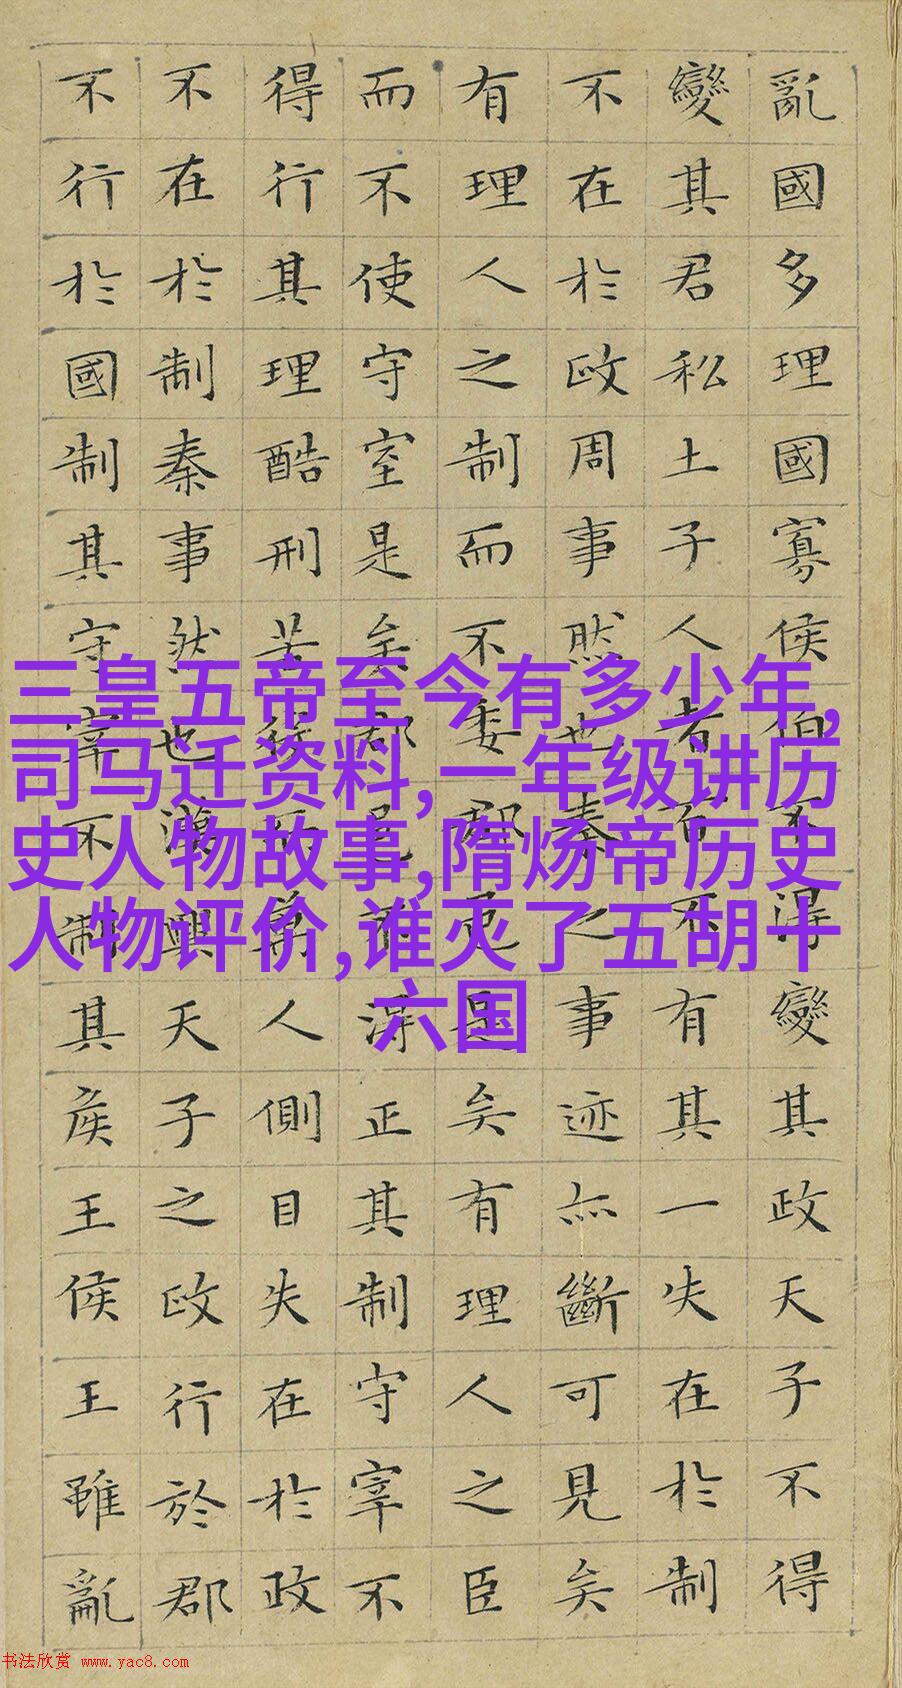 亂國多理國寡侯伯不得變其政天子不得
變其君私土子人者百不有其一失在於制
不在於政周事然也秦之事迹亦斷可見矣
有理人之制而不委郡邑是矣有理人之臣
而不使守宰是矣郡邑不得正其制守宰不
得行其理酷刑苦役而萬人側目失在於政
不在於制秦事然也漢興天子之政行於郡
不行於國制其守宰不制其侯王侯王雖亂
三皇五帝至今有多少年,
司马迁资料,一年级讲历
史人物故事,隋炀帝历史
人物评价,谁灭了五胡十
六国
书法欣赏 www.yac8.com